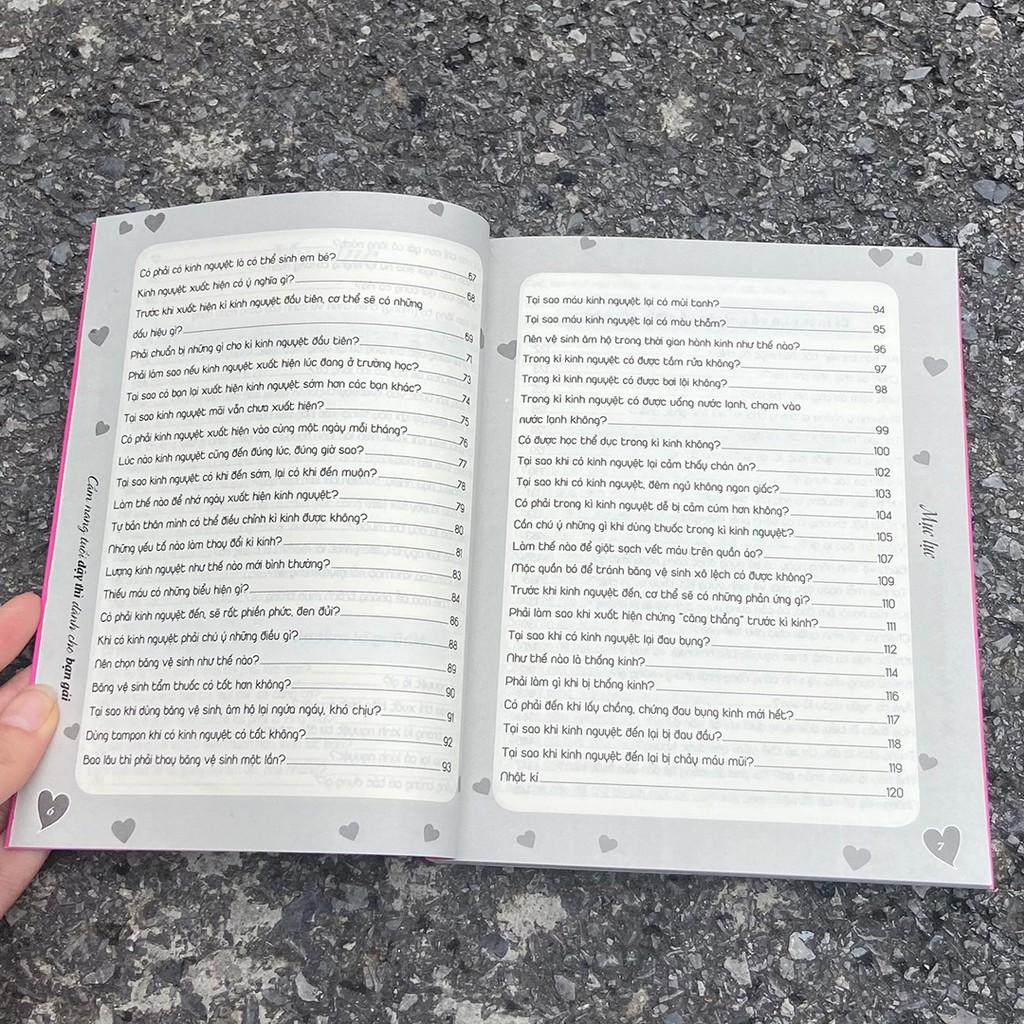 Có phải có kinh nguyệt là có thể sinh em bé? 67
Kinh nguyệt xuất hiện có ý nghĩa gì? 68
Trước khi xuất hiện kì kinh nguyệt đầu tiên, cơ thể sẽ có những
dấu hiệu gì? 69
Phải chuẩn bị những gì cho kì kinh nguyệt đầu tiên? 71
Phải làm sao nếu kinh nguyệt xuất hiện lúc đang ở trường học? 73
Tại sao có bạn lại xuất hiện kinh nguyệt sớm hơn các bạn khác? 74
Tại sao kinh nguyệt mãi vẫn chưa xuất hiện? 75
Có phải kinh nguyệt xuất hiện vào cùng một ngày mỗi tháng? 76
Lúc nào kinh nguyệt cũng đến đúng lúc, đúng giờ sao? 77
Tại sao kinh nguyệt có khi đến sớm, lại có khi đến muộn? 78
Làm thế nào để nhớ ngày xuất hiện kinh nguyệt? 79
Tự bản thân mình có thể điều chỉnh kì kinh được không? 80
Những yếu tố nào làm thay đổi kì kinh? 81
Lượng kinh nguyệt như thế nào mới bình thường? 83
Thiếu máu có những biểu hiện gì? 84
Có phải kinh nguyệt đến, sẽ rất phiền phức, đen đủi? 86
Khi có kinh nguyệt phải chú ý những điều gì? 88
Nên chọn băng vệ sinh như thế nào? 89
Băng vệ sinh tẩm thuốc có tốt hơn không? 90
Tại sao khi dùng băng vệ sinh, âm hộ lại ngứa ngáy, khó chịu? 91
Dùng tampon khi có kinh nguyệt có tốt không? 92
Bao lâu thì phải thay băng vệ sinh một lần? 93
Cẩm nang tuổi dậy thì dành cho bạn gái
6
Tại sao máu kinh nguyệt lại có mùi tanh? 94
Tại sao máu kinh nguyệt lại có màu thẫm? 95
Nên vệ sinh âm hộ trong thời gian hành kinh như thế nào? 96
Trong kì kinh nguyệt có được tắm rửa không? 97
Trong kì kinh nguyệt có được bơi lội không? 98
Trong kì kinh nguyệt có được uống nước lạnh, chạm vào
nước lạnh không? 99
Có được học thể dục trong kì kinh không? 100
Tại sao khi có kinh nguyệt lại cảm thấy chán ăn? 102
Tại sao khi có kinh nguyệt, đêm ngủ không ngon giấc? 103
Có phải trong kì kinh nguyệt dễ bị cảm cúm hơn không? 104
Cần chú ý những gì khi dùng thuốc trong kì kinh nguyệt? 105
Làm thế nào để giặt sạch vết máu trên quần áo? 107
Mặc quần bó để tránh băng vệ sinh xô lệch có được không? 109
Trước khi kinh nguyệt đến, cơ thể sẽ có những phản ứng gì? 110
Phải làm sao khi xuất hiện chứng "căng thẳng" trước kì kinh? 111
Tại sao khi có kinh nguyệt lại đau bụng? 112
Như thế nào là thống kinh? 114
Phải làm gì khi bị thống kinh? 116
Có phải đến khi lấy chồng, chứng đau bụng kinh mới hết? 117
Tại sao khi kinh nguyệt đến lại bị đau đầu? 118
Tại sao khi kinh nguyệt đến lại bị chảy máu mũi? 119
Nhật kí 120
Mục lục
7